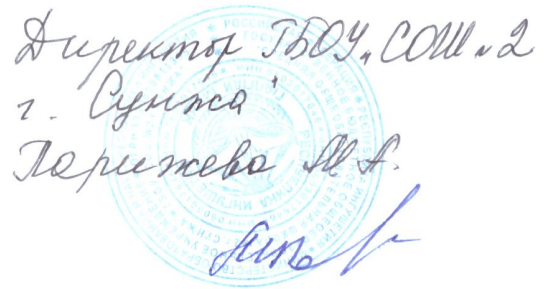 Директор ГБОУ „СОШ №2
г. Сунжа"
Парижева М А.